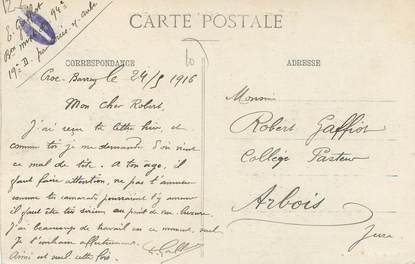 E. Gaffiot
94e
19e D.
CARTE POSTALE
CORRESPONDANCE
ADRESSE
le 24/9 1916
Mon Cher Robert,
J'ai reçu ta lettre hier, et
comme toi je me demande d'où vient
ce mal de tête. A ton âge, il
faut faire attention, ne pas t'amuser
comme tes camarades pourraient l'y
il faut être très sérieux au point de vue
J'ai beaucoup de travail en ce moment,
Je t'embrasse affectueusement
Ainsi est
Monsieur
Robert Gaffiot
Collège Pasteur
Arbois
Jura